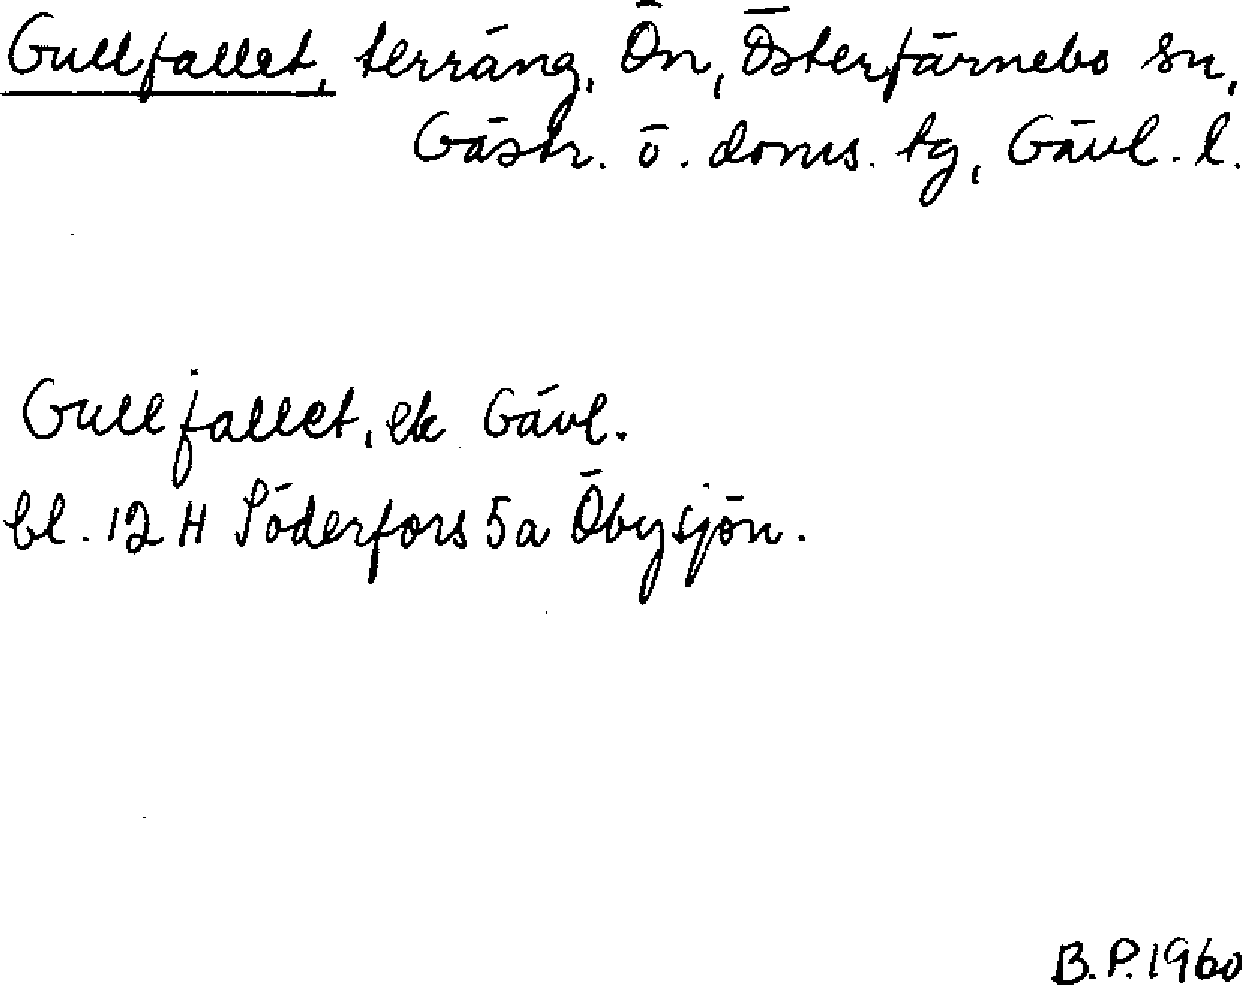 Gullfallet, terräng, Ön, Österfärnebo sn,
Gästr. ö. doms. tg, Gävl. l.
Gullfallet, ek Gävl.
bl. 12 H Söderfors 5a Öbysjön.
B.P. 1960